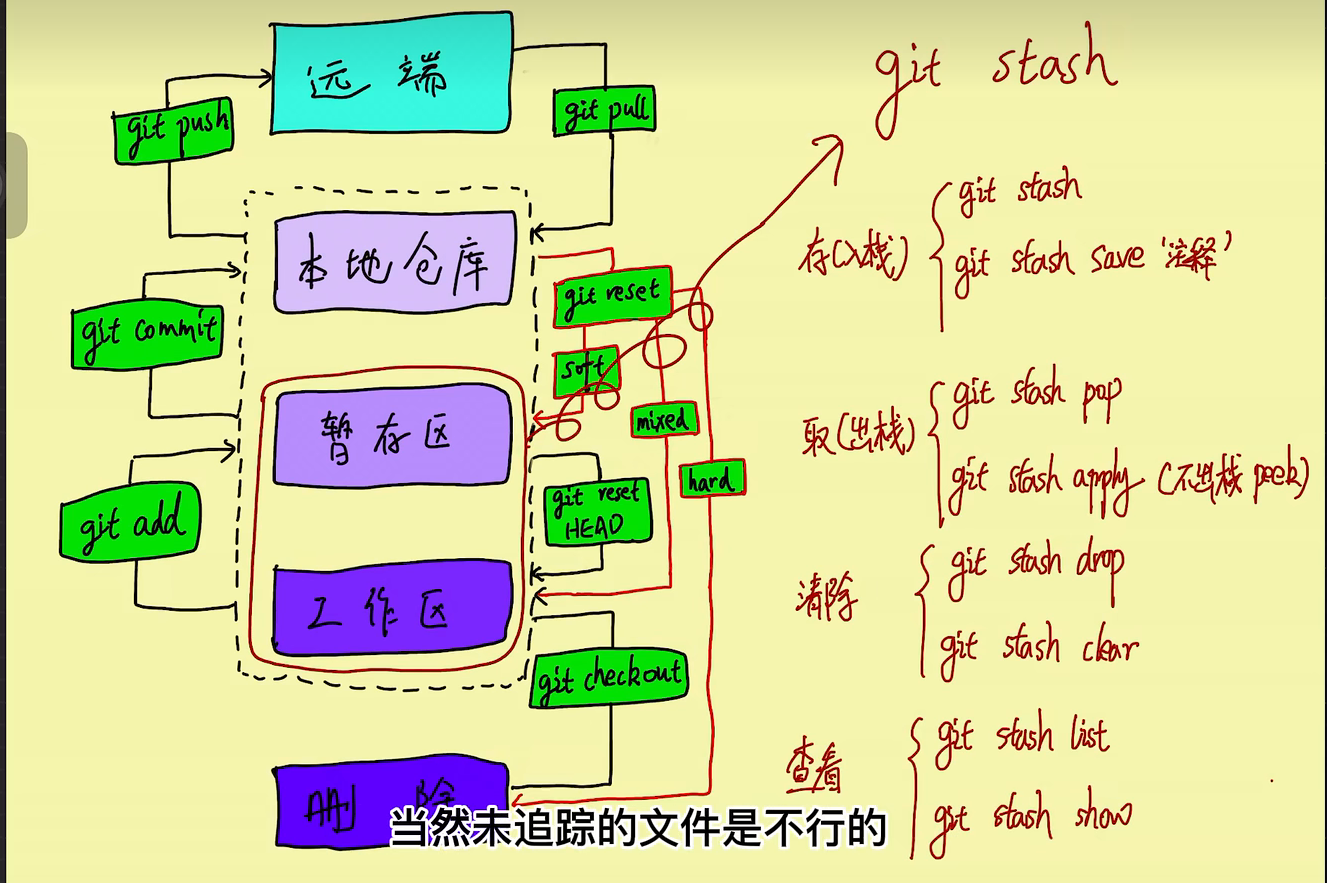 远端
git push
git pull
本地仓库
git commit
git reset
soft
mixed
hard
暂存区
git add
git reset
HEAD
工作区
git checkout
删除
git stash
存(入栈)
git stash
git stash save '注释'
取(出栈)
git stash pop
git stash apply (不出栈 peek)
清除
git stash drop
git stash clear
查看
git stash list
git stash show
当然未追踪的文件是不行的